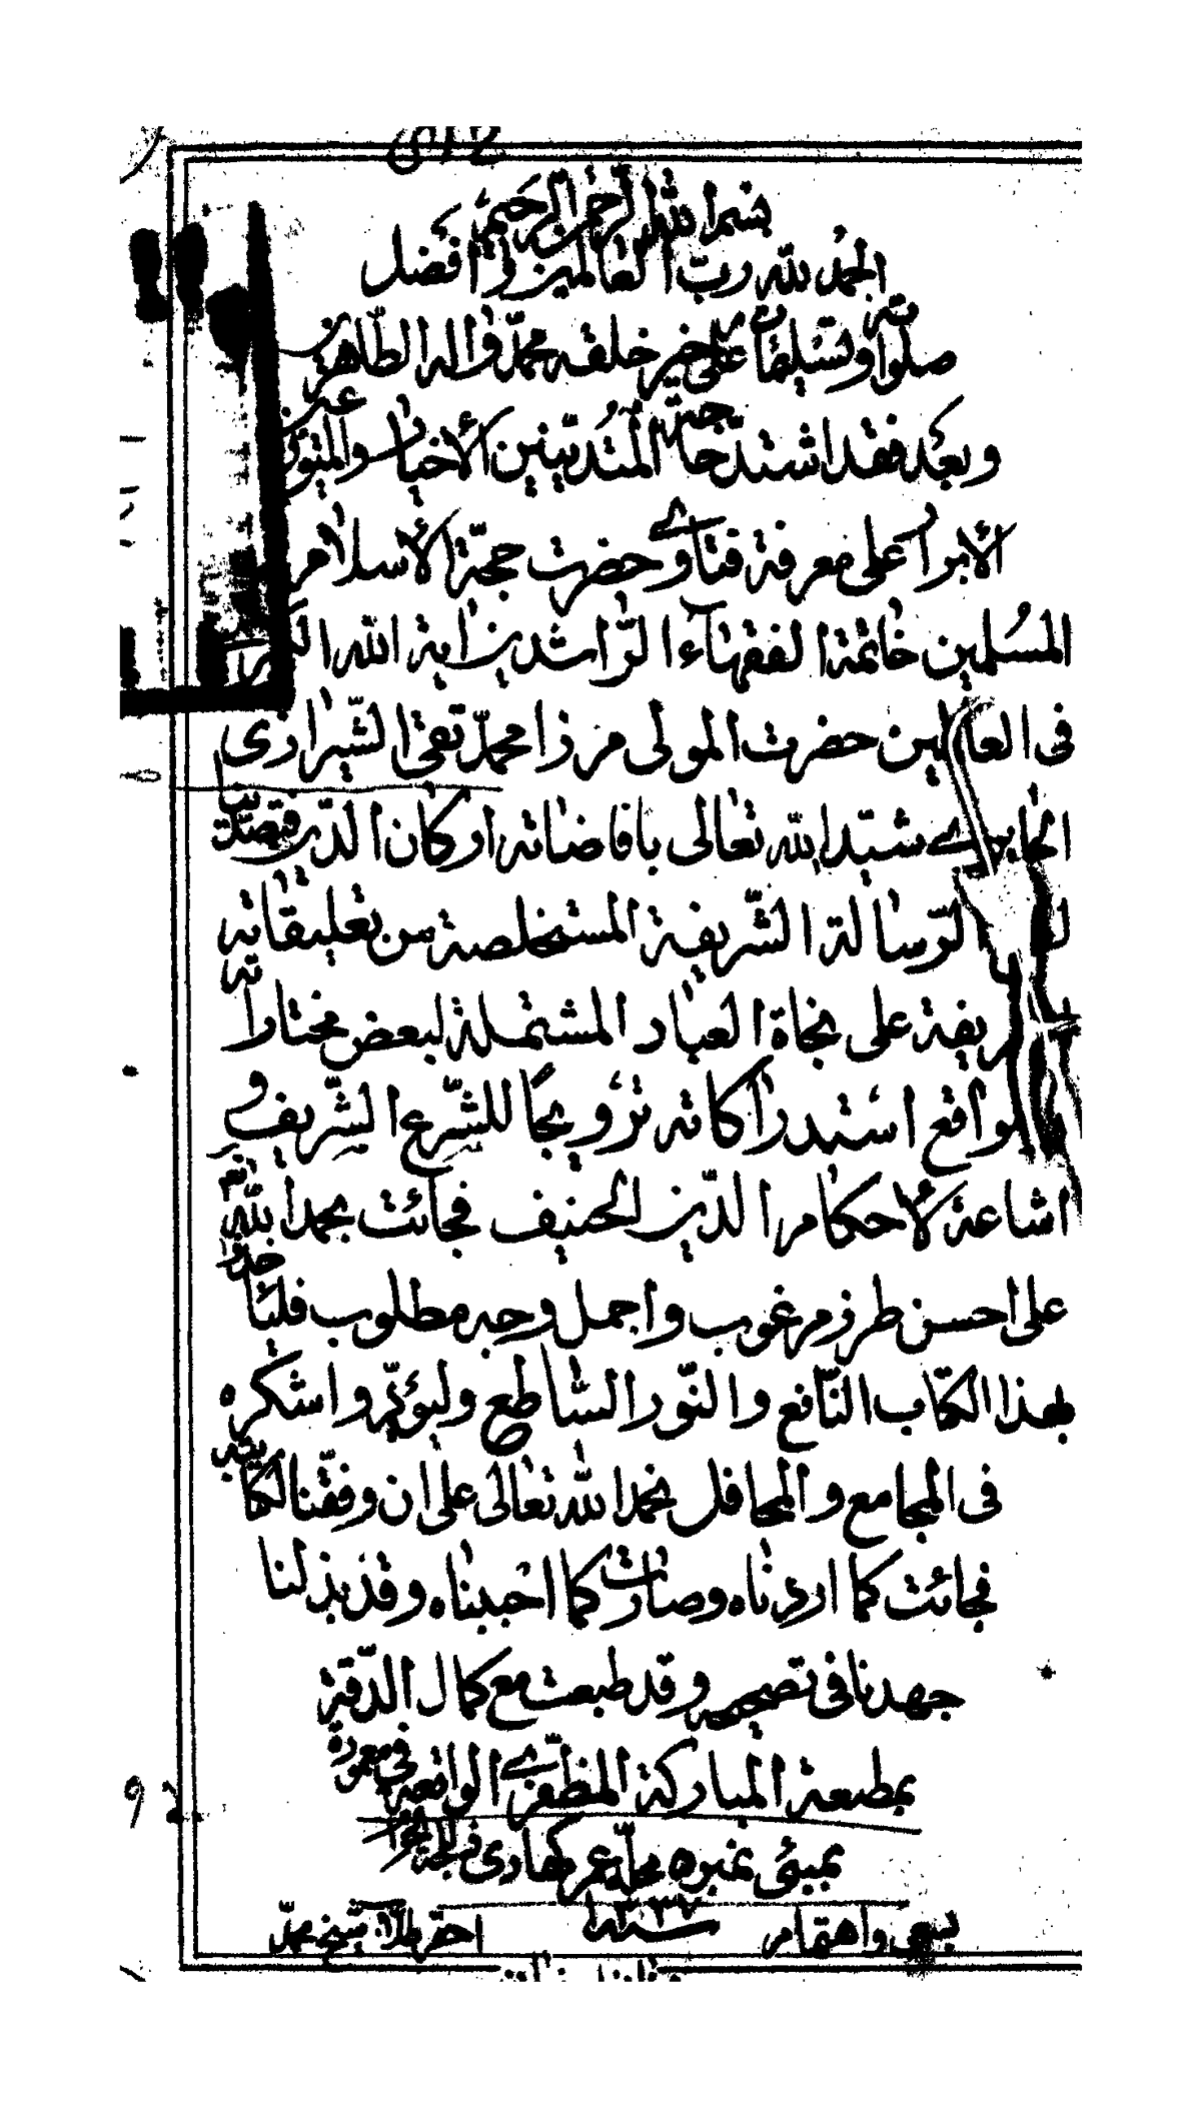 بسم الله الرحمن الرحيم
الحمد لله رب العالمين و افضل
صلواته و تسليماته على خير خلقه محمد و اله الطاهرين
و بعد فقد اشتد حاجة المتدينين الأخيار و المتورعين
الأبرار على معرفة فتاوى حضرت حجة الأسلام
المسلمين خاتمة الفقهاء الراشدين اية الله
فى العالمين حضرت المولى مرزا محمد تقى الشيرازى
شيد الله تعالى بافاضاته اركان الدين فتصدينا
الرسالة الشريفة المستخلصة من تعليقاته
الشريفة على نجاة العباد المشتملة لبعض مختاراته
و لواقع استدراكاته ترويجا للشرع الشريف و
اشاعة لأحكام الدين الحنيف فجائت بحمد الله
على احسن طرز مرغوب و اجمل وجه مطلوب فليأخذوا
بهذا الكتاب النافع و النور الساطع و ليؤد و اشكره
فى المجامع و المحافل نحمد الله تعالى على ان وفقنا لكتابته
فجائت كما اردناه و صارت كما احببناه و قد بذلنا
جهدنا فى تصحيحه و قد طبعت مع كمال الدقة
بمطبعة المباركة المظفرى الواقعة فى معمورة
بمبئى نمبره محله عمر كهادى
بسعى و اهتمام سنه ١٣٣٧ احقر شيخ محمد